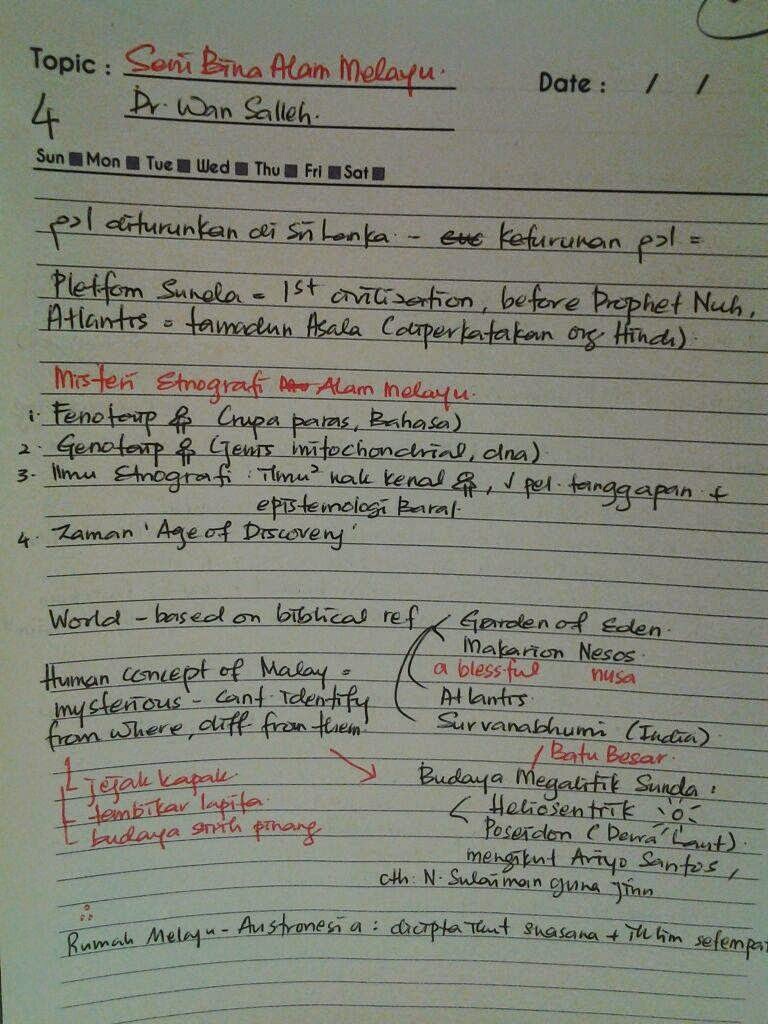 Topic : Seni Bina Alam Melayu.
Date : / /
4 Dr. Wan Salleh.
Sun Mon Tue Wed Thu Fri Sat
diturunkan di Sri Lanka - keturunan =
Pletfom Sunda = 1st civilization, before Prophet Nuh,
Atlantis = tamadun Asala (diperkatakan org Hindi)
Misteri Etnografi Alam Melayu.
1. Fenotaip (rupa paras, Bahasa)
2. Genotaip (jenis mitochondrial, dna)
3. Ilmu Etnografi : ilmu² nak kenal , ↓ pel. tanggapan +
epistemologi Barat.
4. Zaman 'Age of Discovery'
World - based on biblical ref < Garden of Eden.
Makarion Nesos.
a blessful nusa
Atlantis.
Survanabhumi (India)
Human concept of Malay =
mysterious - cant identify
from where, diff from them.
jejak kapak
tembikar lapita
budaya sirih pinang
Batu Besar.
Budaya Megalitik Sunda :
< Heliosentrik
Poseidon (Dewa Laut).
mengikut Ariyo Santos,
cth: N. Sulaiman guna jinn
Rumah Melayu - Austronesia : dicipta ikut suasana + iklim setempat